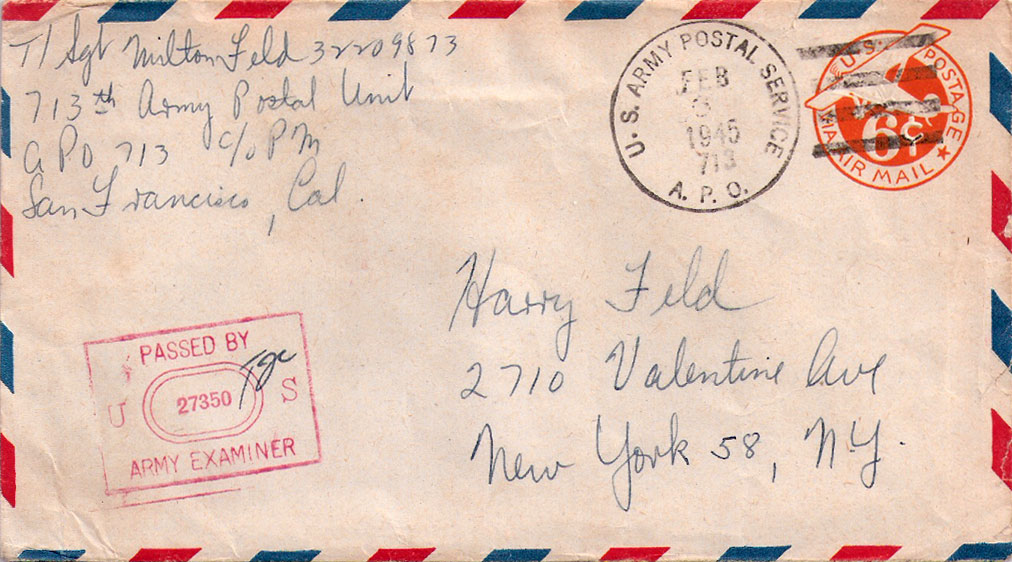 T/Sgt Milton Feld 32209873
713th Army Postal Unit
APO 713 c/o PM
San Francisco, Cal.
U. S. ARMY POSTAL SERVICE
FEB
3
1945
713
A. P. O.
U.S. POSTAGE
6¢
VIA AIR MAIL
Harry Feld
2710 Valentine Ave
New York 58, N.Y.
PASSED BY
U 27350 S
ARMY EXAMINER